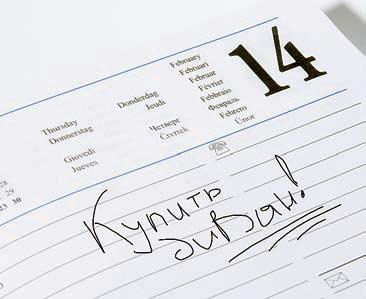 February
Februari
Februar
Février
Febbraio
Февраль
Febrero
Únor
14
Thursday
Donnerstag
Giovedì
Jueves
Donderdag
Jeudi
Четверг
Čtvrtek
28
29
23 30
Купить
диван!